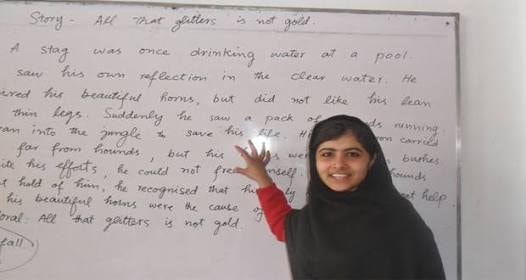 Story - All that glitters is not gold.
A stag was once drinking water at a pool.
saw his own reflection in the clear water. He
ired his beautiful horns, but did not like his lean
thin legs. Suddenly he saw a pack of ds running.
ran into the jungle to save his life. H on carried
far from hounds, but his s wer bushes.
ite his efforts, he could not free mself. hounds
t hold of him, he recognised that hi ly ot help
his beautiful horns were the cause of
oral: All that glitters is not gold.
fall